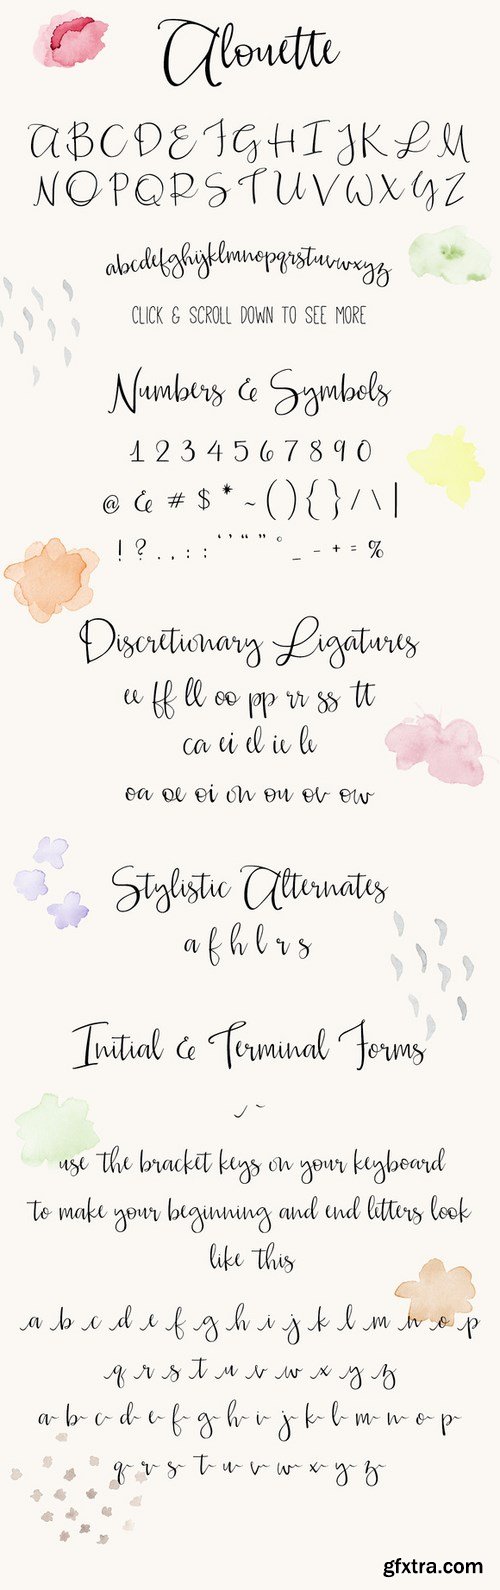 Alouette
A B C D E F G H I J K L M
N O P Q R S T U V W X Y Z
abcdefghijklmnopqrstuvwxyz
CLICK & SCROLL DOWN TO SEE MORE
Numbers & Symbols
1 2 3 4 5 6 7 8 9 0
@ & # $ * ~ ( ) { } / \ |
! ? . , ; : ‘ ’ “ ” " ° _ - + = %
Discretionary Ligatures
ee ff ll oo pp rr ss tt
ca ei el ie le
oa oe oi on ou ov ow
Stylistic Alternates
a f h l r s
Initial & Terminal Forms
use the bracket keys on your keyboard
to make your beginning and end letters look
like this
a b c d e f g h i j k l m n o p
q r s t u v w x y z
a b c d e f g h i j k l m n o p
q r s t u v w x y z
gfxtra.com